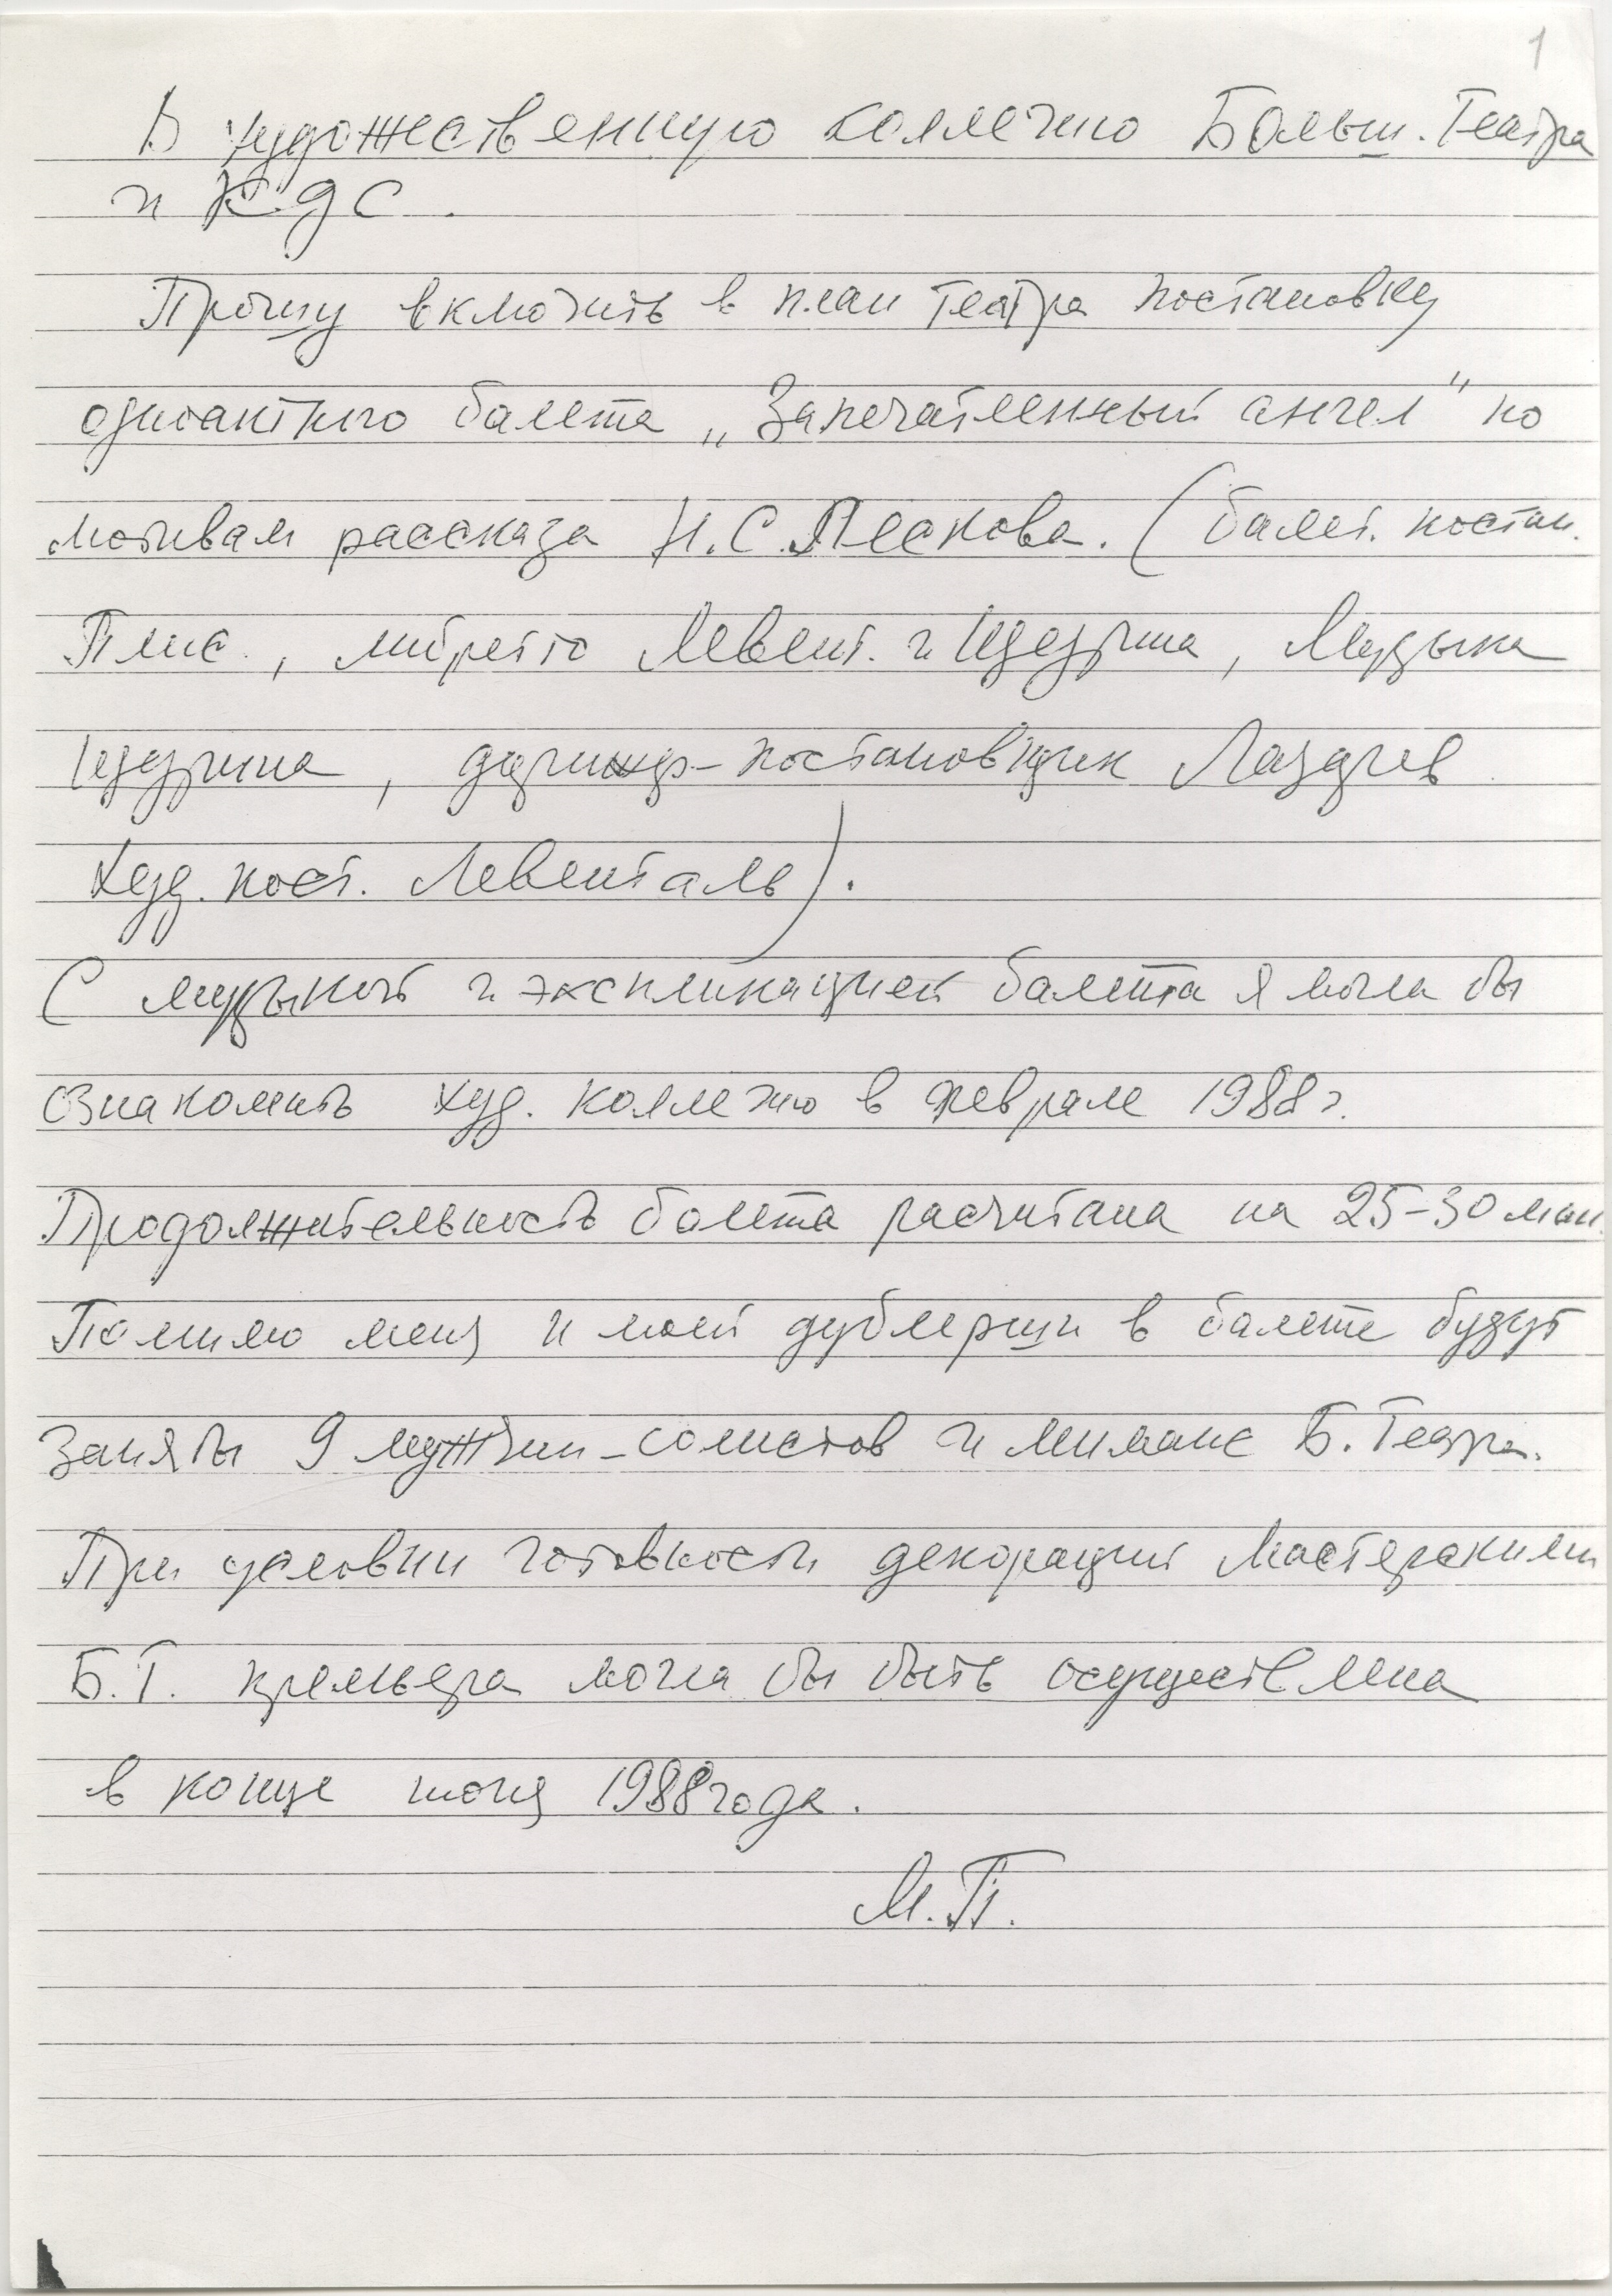 1
В художественную коллегию Больш. Театра
и КДС.
Прошу включить в план театра постановку
одноактного балета „Запечатленный ангел" по
мотивам рассказа Н.С. Лескова. (балет. постан.
Плис., либретто Левент. и Щедрина, Музыка
Щедрина, дирижер-постановщик Лазарев
Худ. пост. Левенталь).
С музыкой и экспликацией балета я могла бы
ознакомить худ. коллегию в феврале 1988 г.
Продолжительность балета расчитана на 25-30 мин.
Помимо меня и моей дублерши в балете будут
заняты 9 мужчин-солистов и миманс Б. Театра.
При условии готовности декораций мастерскими
Б.Т. премьера могла бы быть осуществлена
в конце июня 1988 года.
М.П.